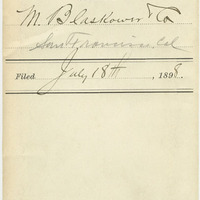 M. Blaskower & Co
San Francisco, Cal
Filed July 18th, 1898.